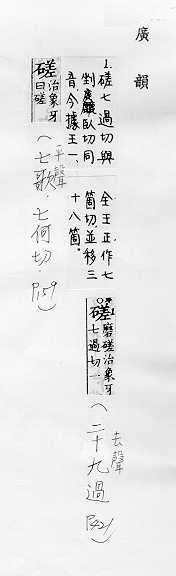 廣韻
1.磋七過切與
剉麤臥切同
音,今據王一、
全王正作七
箇切,並移三
十八箇。
磋治象牙
曰磋
(平聲
七歌.七何切.P.159)
磋磨磋治象牙
七過切一
(去聲
二十九過 P421)